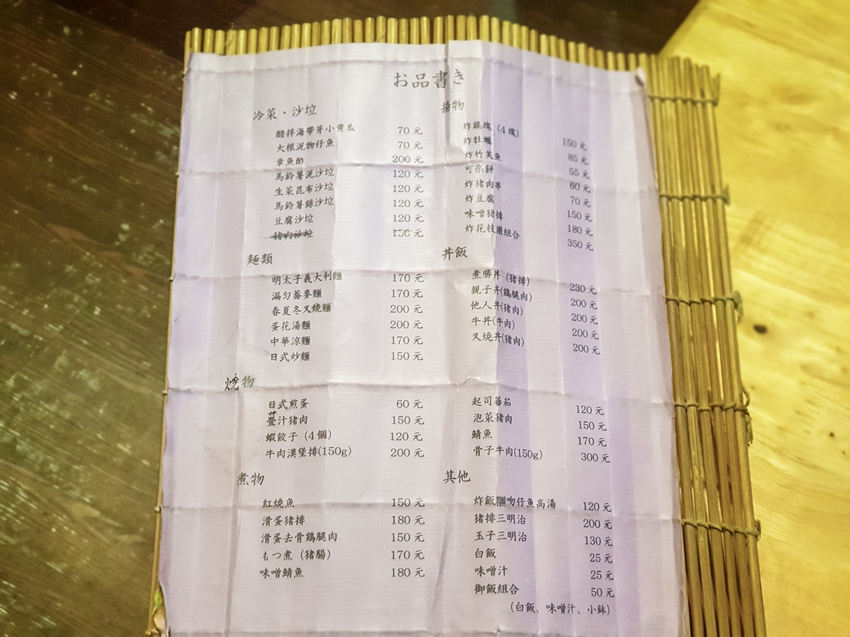 お品書き
冷菜・沙垃
醋拌海帶芽小黃瓜 70元
大根泥物仔魚 70元
章魚酢 200元
馬鈴薯泥沙垃 120元
生菜昆布沙垃 120元
馬鈴薯絲沙垃 120元
豆腐沙垃 120元
豬肉沙垃 150元
揚物
炸雞塊 (4塊) 150元
炸牡蠣 85元
炸竹筴魚 55元
可樂餅 60元
炸豬肉串 70元
炸豆腐 150元
味噌豬排 180元
炸花枝圈組合 350元
麵類
明太子義大利麵 170元
漏勺蕎麥麵 170元
春夏冬叉燒麵 200元
蛋花湯麵 200元
中華涼麵 170元
日式炒麵 150元
丼飯
煮勝丼 (豬排) 230元
親子丼(鷄腿肉) 200元
他人丼(豬肉) 200元
牛丼(牛肉) 200元
叉燒丼(豬肉) 200元
燒物
日式煎蛋 60元
薑汁猪肉 150元
蝦餃子 (4個) 120元
牛肉漢堡排(150g) 200元
起司蕃茄 120元
泡菜猪肉 150元
鯖魚 170元
骨子牛肉(150g) 300元
煮物
紅燒魚 150元
滑蛋猪排 180元
滑蛋去骨鷄腿肉 150元
もつ煮 (猪腸) 170元
味噌鯖魚 180元
其他
炸飯糰吻仔魚高湯 120元
猪排三明治 200元
玉子三明治 130元
白飯 25元
味噌汁 25元
御飯組合 50元
(白飯、味噌汁、小缽)